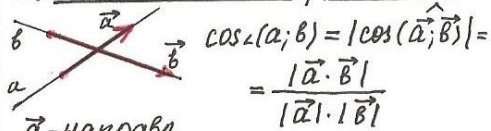 a⃗
в
в⃗
a
cos∠(a; в) = |cos(a⃗; в⃗)| =
= |a⃗ · в⃗| / |a⃗| · |в⃗|
a⃗ - направл